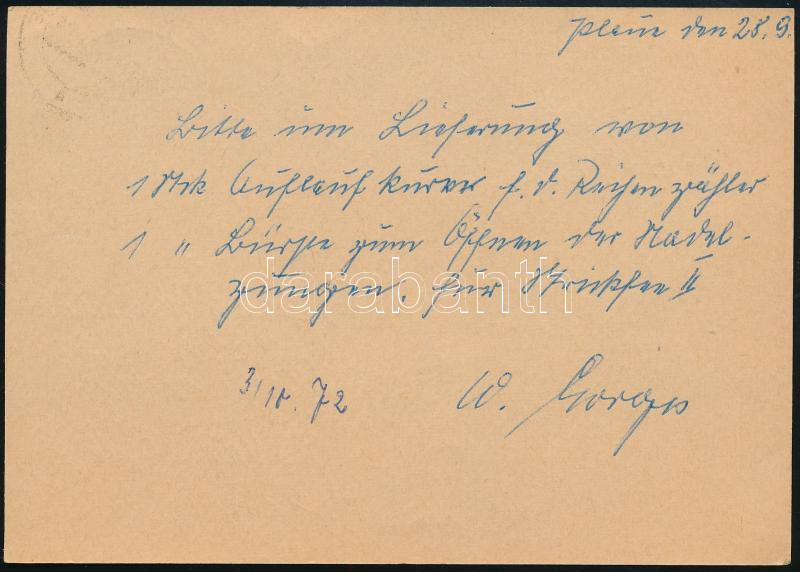 Plaue den 28. 9.
Bitte um Lieferung von
1 Stck Auflaufkurve f. d. Reihenzähler
1 " Bürste zum Öffnen der Nadel-
zungen. für Strickfee II
3/10. 72
W.
darabanth